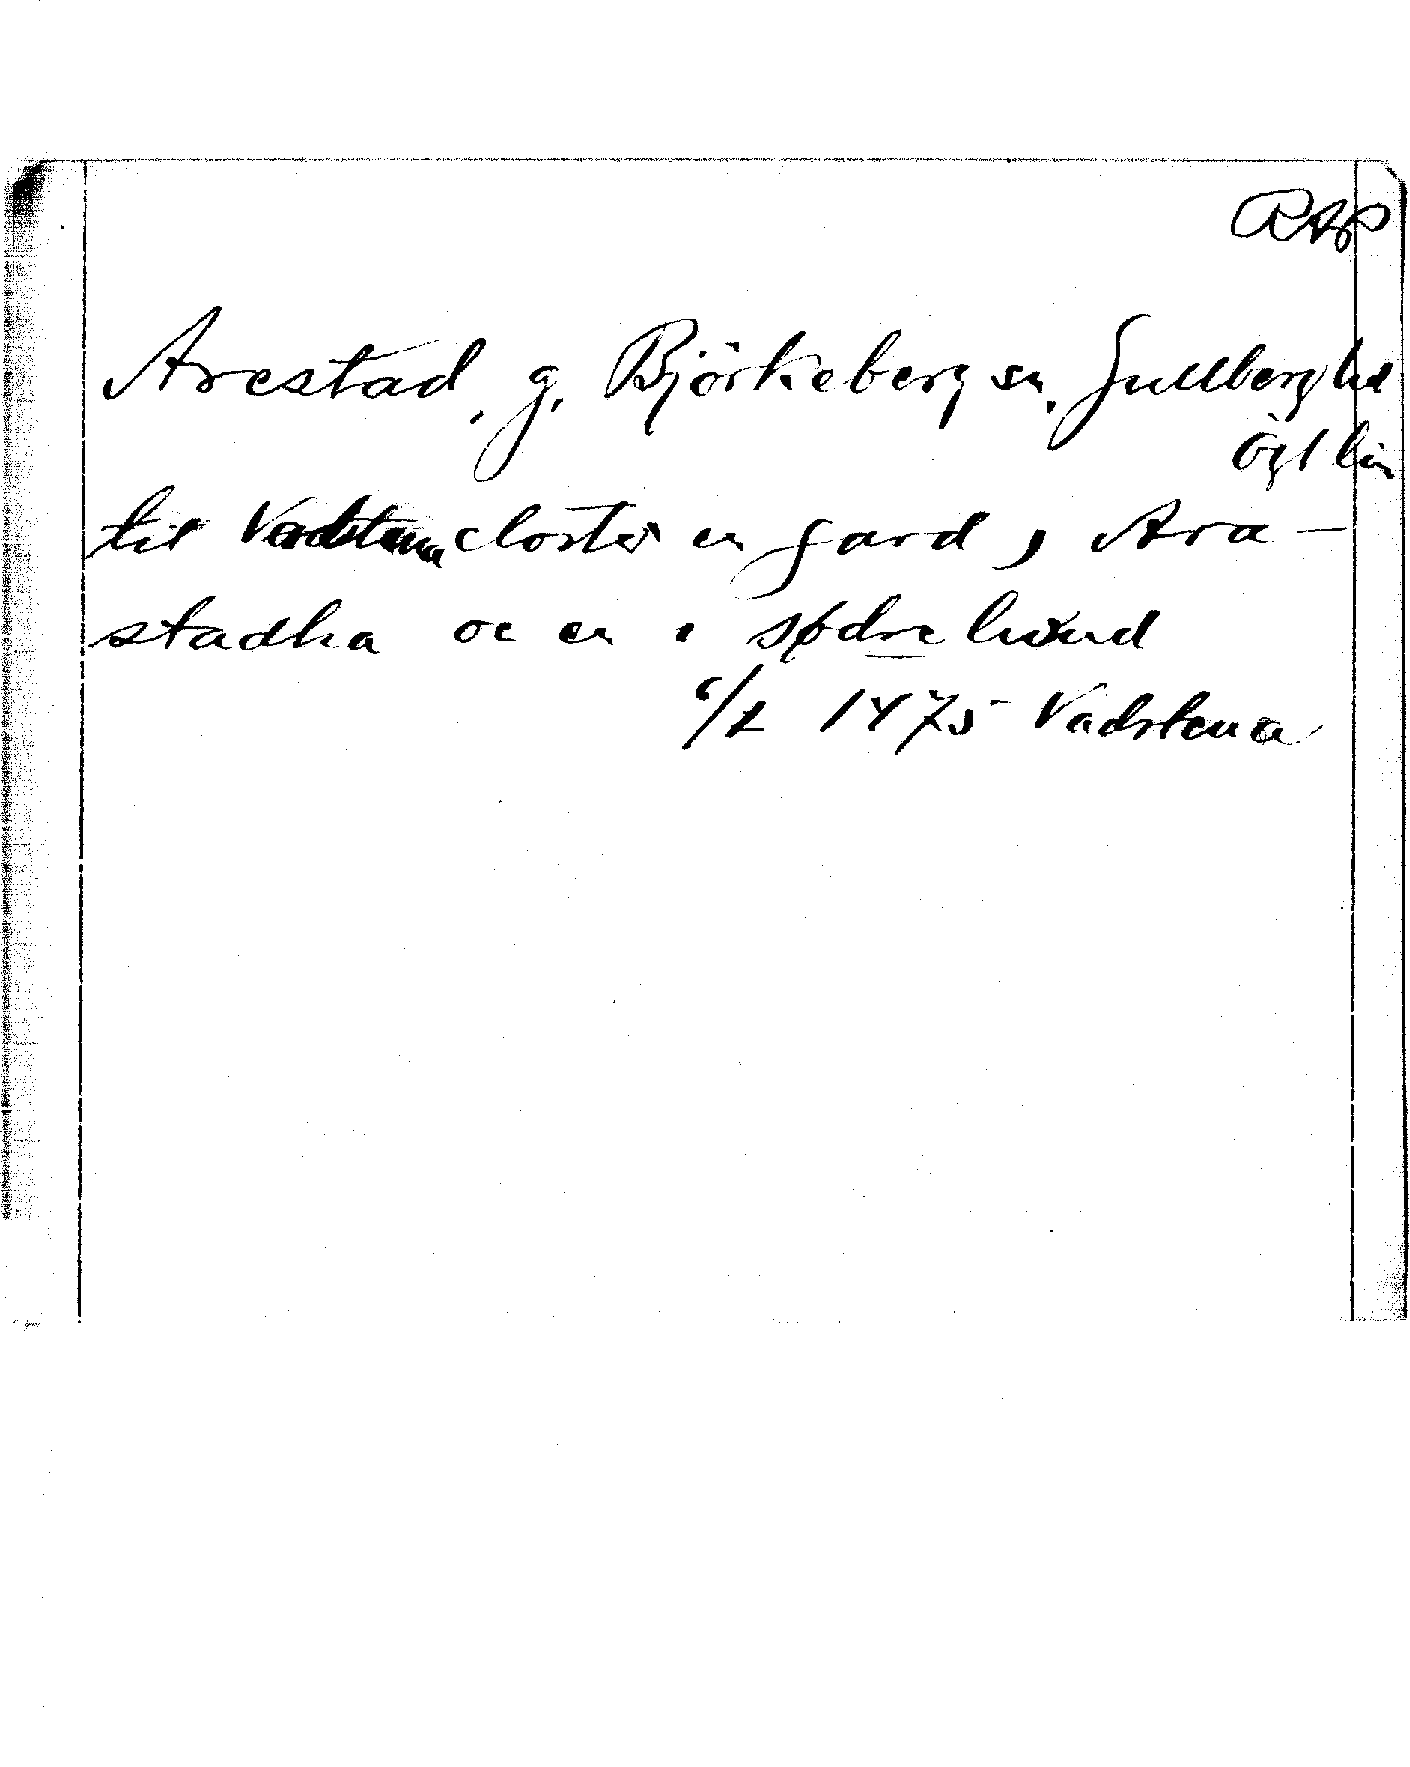 RAP
Arestad, g. Björkeberg sn, Gullberg hd
Ögl län
til Vadstena closter en gard i Ara-
stadha oc en i södre lund
6/2 1475 Vadstena